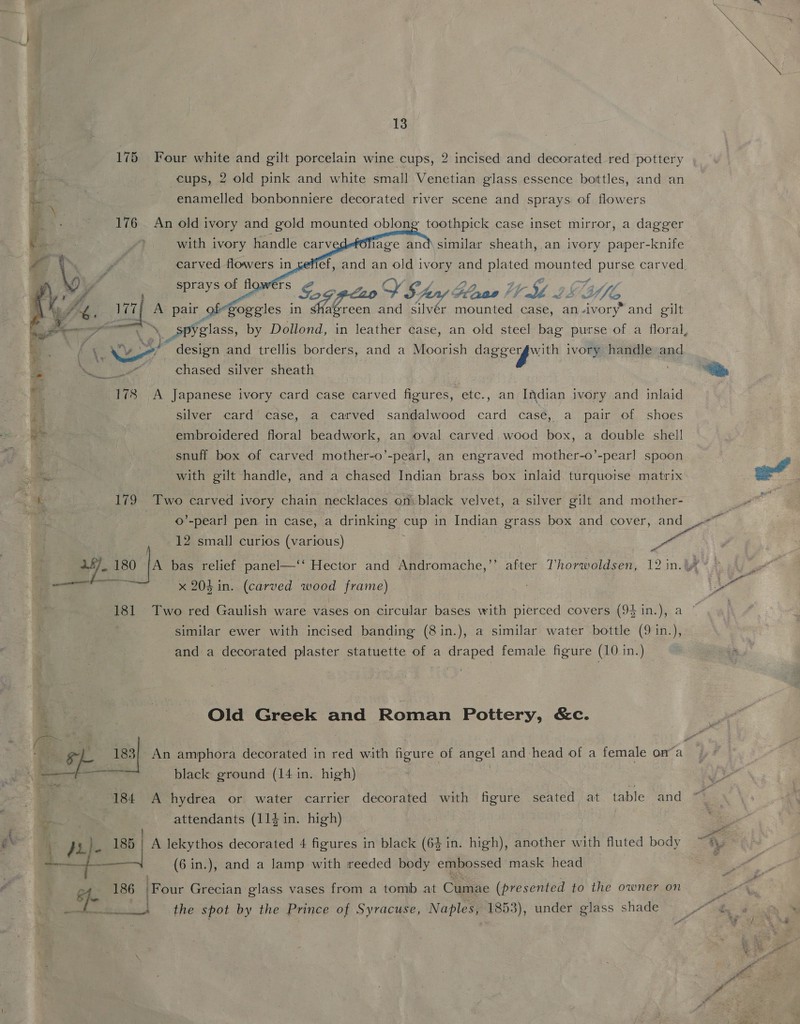 13
175 Four white and gilt porcelain wine cups, 2 incised and decorated red pottery
cups, 2 old pink and white small Venetian glass essence bottles, and an
enamelled bonbonniere decorated river scene and sprays of flowers
176 An old ivory and gold mounted oblong toothpick case inset mirror, a dagger
with ivory handle carved foliage and similar sheath, an ivory paper-knife
carved flowers in relief, and an old ivory and plated mounted purse carved
sprays of flowers
177 A pair of goggles in shagreen and silver mounted case, an ivory and gilt
spyglass, by Dollond, in leather case, an old steel bag purse of a floral,
design and trellis borders, and a Moorish dagger with ivory handle and
chased silver sheath
178 A Japanese ivory card case carved figures, etc., an Indian ivory and inlaid
silver card case, a carved sandalwood card case, a pair of shoes
embroidered floral beadwork, an oval carved wood box, a double shell
snuff box of carved mother-o'-pearl, an engraved mother-o'-pearl spoon
with gilt handle, and a chased Indian brass box inlaid turquoise matrix
179 Two carved ivory chain necklaces on black velvet, a silver gilt and mother-
o'-pearl pen in case, a drinking cup in Indian grass box and cover, and
12 small curios (various)
180 A bas relief panel—“Hector and Andromache,” after Thorwoldsen, 12 in.
x 20½ in. (carved wood frame)
181 Two red Gaulish ware vases on circular bases with pierced covers (9½ in.), a
similar ewer with incised banding (8 in.), a similar water bottle (9 in.),
and a decorated plaster statuette of a draped female figure (10 in.)
Old Greek and Roman Pottery, &c.
183 An amphora decorated in red with figure of angel and head of a female on a
black ground (14 in. high)
184 A hydrea or water carrier decorated with figure seated at table and
attendants (11½ in. high)
185 A lekythos decorated 4 figures in black (6½ in. high), another with fluted body
(6 in.), and a lamp with reeded body embossed mask head
186 Four Grecian glass vases from a tomb at Cumae (presented to the owner on
the spot by the Prince of Syracuse, Naples, 1853), under glass shade